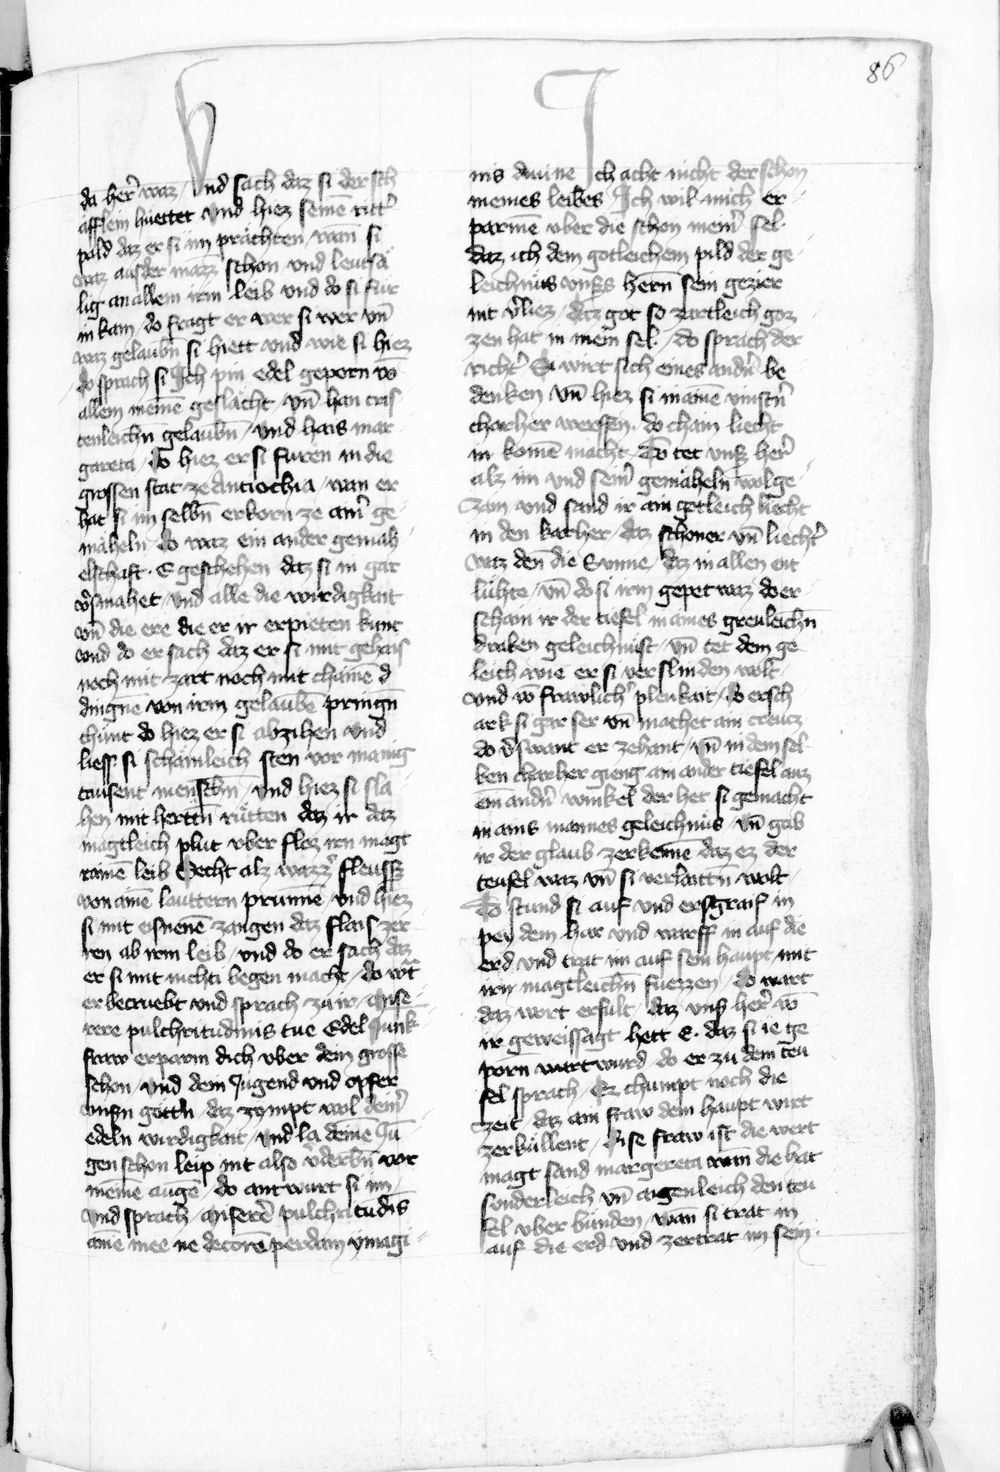 86
da her̄ waz / Und sach daz si der sch
äfflein huettet und hiez seinē ritt̄
pald daz er si im prächten / wan̄ si
waz ausder mazz schon und leutsä
lig an allem irm leib und do si fur
in kam / do fragt er wer si wer vn̄
waz gelaubn̄ si hiett und wie si hiez
do sprach si Ich pin edel geporn vō
allem meinē geslächt / vn̄ han cris
tenleichn̄ gelaubn̄ / und hais mar
gareta / Do hiez er si furen in die
grossen stat ze Antiochia / wan er
hat si im selbn̄ erkorn ze ain̄ ge
mäheln do waz ein ander gemäh
elschaft · E geschehen daz si in gar
v̄smahet / und alle die wirdigkait
vn̄ die ere die er ir erpieten kunt
und do er sach daz er si mit gehais
noch mit zart noch mit chainē d
dingnē von irm gelaubē pringn̄
chunt do hiez er si abzihen und
liess si schämleich sten vor manig
tausent menschn̄ / und hiez si sla
hen mit hertn̄ rütten daz ir daz
magtleich plut vber floz irn magt
ramē leib Recht alz wazz̄ fleusst
von ainē lauttern prunnē / und hiez
si mit eisnenē zangen daz flais zer
ren ab irm leib / und do er sach daz
er si mit nichti begen macht / do wt̄
er betruebt und sprach zu ir / Mise
rere pulchritudinis tue Edel Junk
fraw erparm dich vber dein grosse
schon und dein Jugend und opfer
unsn̄ göttn̄ / daz zympt wol dein̄
edeln wirdigkait / und la deine Ju
gen schon leip nit also v̄derbn̄ vor
meinē augē / do antwurt si im /
und sprach / Miserē pulchritudīs
aīe mee ne decorē perdam ymagi
nis diuine Ich acht nicht der schon
meines leibes / Ich wil mich er
parmē vber die schon mein̄ sel ·
daz ich dem gotleichem pild der ge
leichnüs unss hern̄ sein gezier
nit v̄liez / daz got so zartleich goz
zen hat in mein sel · / do sprach der
richt̄ Si wirt sich eines andn̄ be
denken vn̄ hiez si in ainē vinstn̄
charher werffen · do chain liecht
in komē macht / Do tet uns̄ her̄
alz im und sein̄ gemäheln wolge
zam und sand ir ain gotleich liecht
in den karher / daz schoner vn̄ liecht̄
waz den̄ die Sunne / daz in allen ent
lühte / vn̄ do si irm gepet waz do er
schain ir der tiefel in aines greuleichn̄
draken geleichnüst / vn̄ tet dem ge
leich wie er si verslinden wolt
und vō frawlich̄ plenkait / do ersch
ark si gar ser vn̄ machet ain creucz
do v̄swant er zehant / vn̄ in dem sel
ben charher gieng ain ander tiefel auz
ein andn̄ winkel der het si gemacht
in ains mannes geleichnüs / vn̄ gab
ir der glaub zerkenē daz ez der
teufel waz vn̄ si verlaittn̄ wolt
Do stund si auf und ersgraif in
pey dem har und warff in auf die
erd / und trat im auf sein haupt mit
irn magtleichn̄ fuezzen / do wart
daz wort erfult / daz uns̄ her̄ vō
ir geweissagt hett E · daz si ie ge
porn wart wurd / do er zu dem teu
fel sprach / Ez chumpt noch die
zeit / daz ain fraw dein haupt wirt
zerkullent / Dise fraw ist die wert
magt sand margereta wan̄ die hat
sonderleich vn̄ aigenleich den teu
fel vber bunden / wan̄ si trat in
auf die erd und zertrat im sein ·